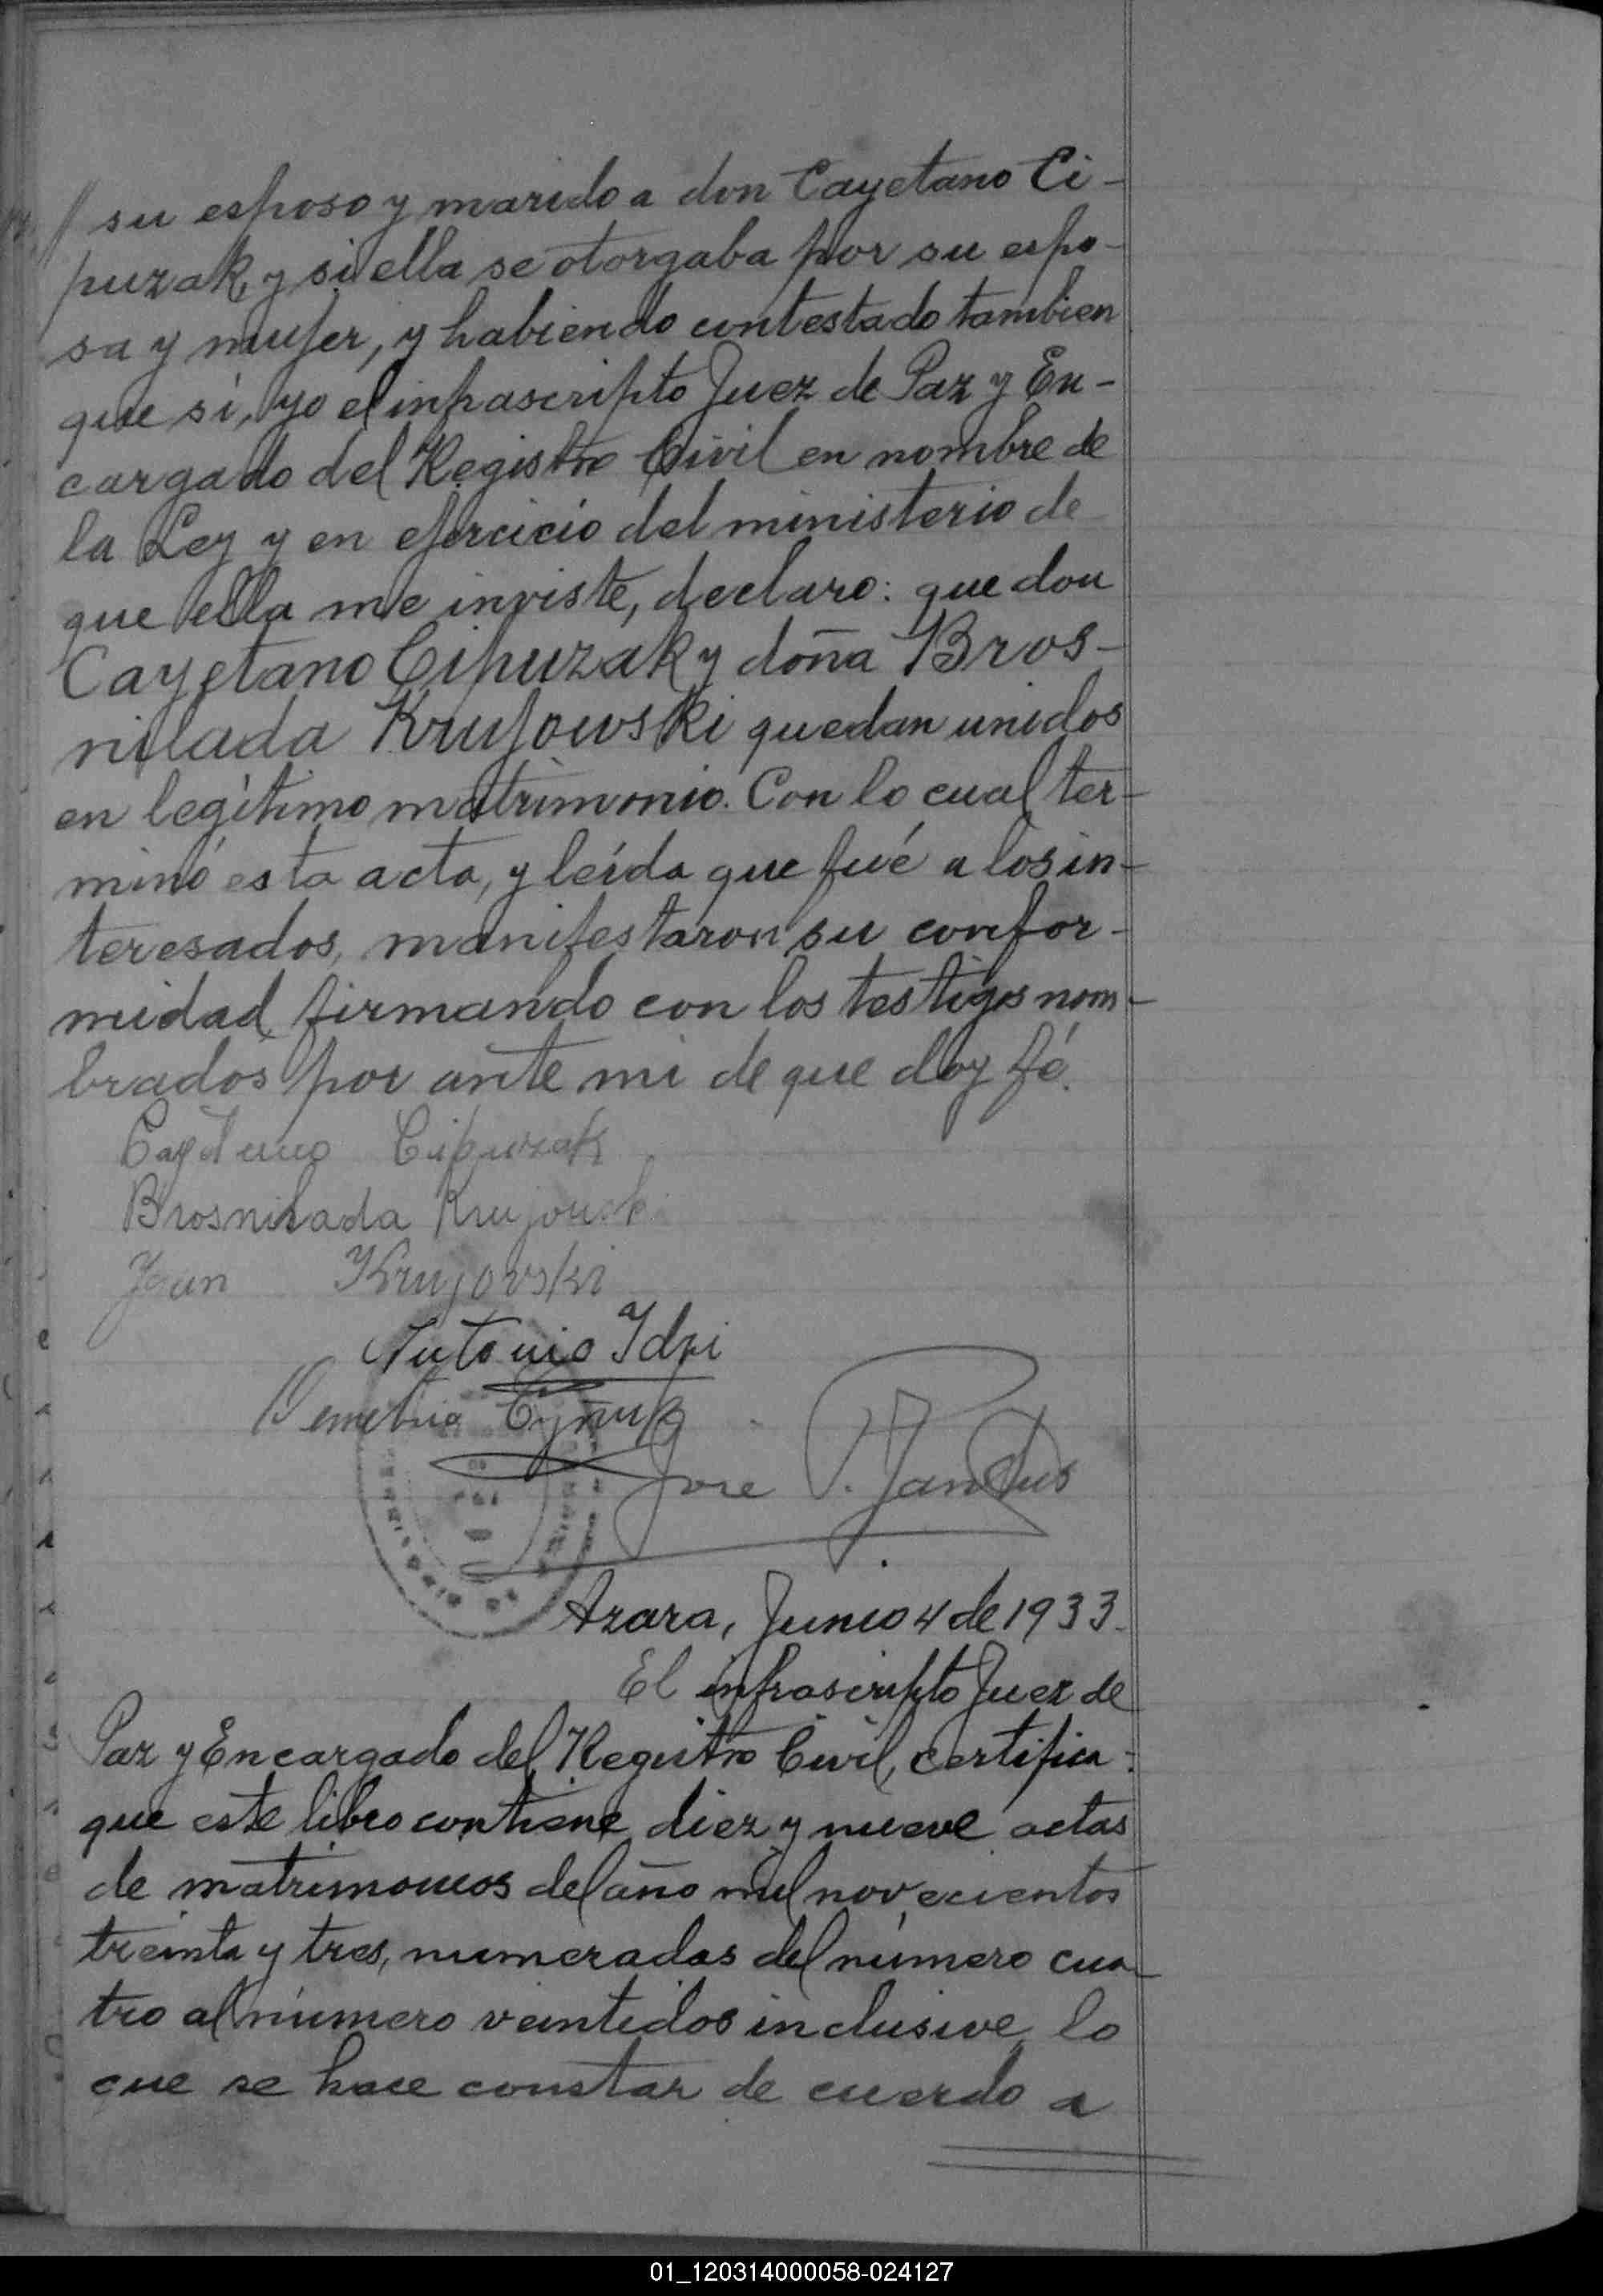 // su esposo y marido a don Cayetano Ci-
puzak, y si ella se otorgaba por su espo-
sa y mujer, y habiendo contestado tambien
que sí, yo el infrascripto Juez de Paz y En-
cargado del Registro Civil en nombre de
la Ley y en ejercicio del ministerio de
que ella me inviste, declaro: que don
Cayetano Cipuzak y doña Bros-
nilada Krujowski quedan unidos
en legítimo matrimonio. Con lo cual ter-
minó esta acta, y leída que fué a los in-
teresados, manifestaron su confor-
midad firmando con los testigos nom-
brados por ante mi de que doy fé.
Cipuzak
Brosnilada Krujouski
Juan Krujovski
Antonio
Demetrio
Jose
Azara, Junio 4 de 1933.
El infrascripto Juez de
Paz y Encargado del Registro Civil, certifica:
que este libro contiene diez y nueve actas
de matrimonios del año mil novecientos
treinta y tres, numeradas del número cua-
tro al número veintidos inclusive, lo
que se hace constar de cuerdo a
01_120314000058-024127